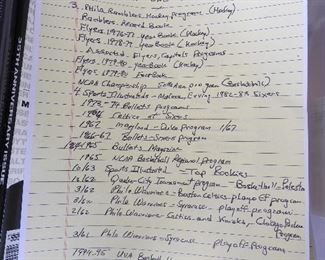 3. Phila Ramblers Hockey Program (Hockey)
Ramblers Record Book
Flyers 1976-77 Year Book (Hockey)
Flyers 1978-79 Year Book (Hockey)
Assorted Flyers, Capitals Programs
Flyers 1979-80 Year Book (Hockey)
Flyers 1979-80 Fact Book
NCAA Championship program (Basketball)
4 Sports Illustrateds - Malone, Erving 1982-83 Sixers
1973-74 Bullets programs
of Sixers
1967 Maryland - Duke Program 1/67
1966-67 Bullets - Sixers Program
1964-1965 Bullets Magazine
1965 NCAA Basketball Regional Program
10/63 Sports Illustrated - Top Rookies
12/62 Quaker City Tournament program - Basketball - Palestra
3/62 Phila Warriors - Boston Celtics playoff program
3/62 Phila Warriors - Syracuse playoff program
2/62 Phila Warriors - Celtics and Knicks, Chicago Packers Program
3/61 Phila Warriors - Syracuse playoff program
1994-95 UVA Basketball
35TH ANNIVERSARY ISSUE